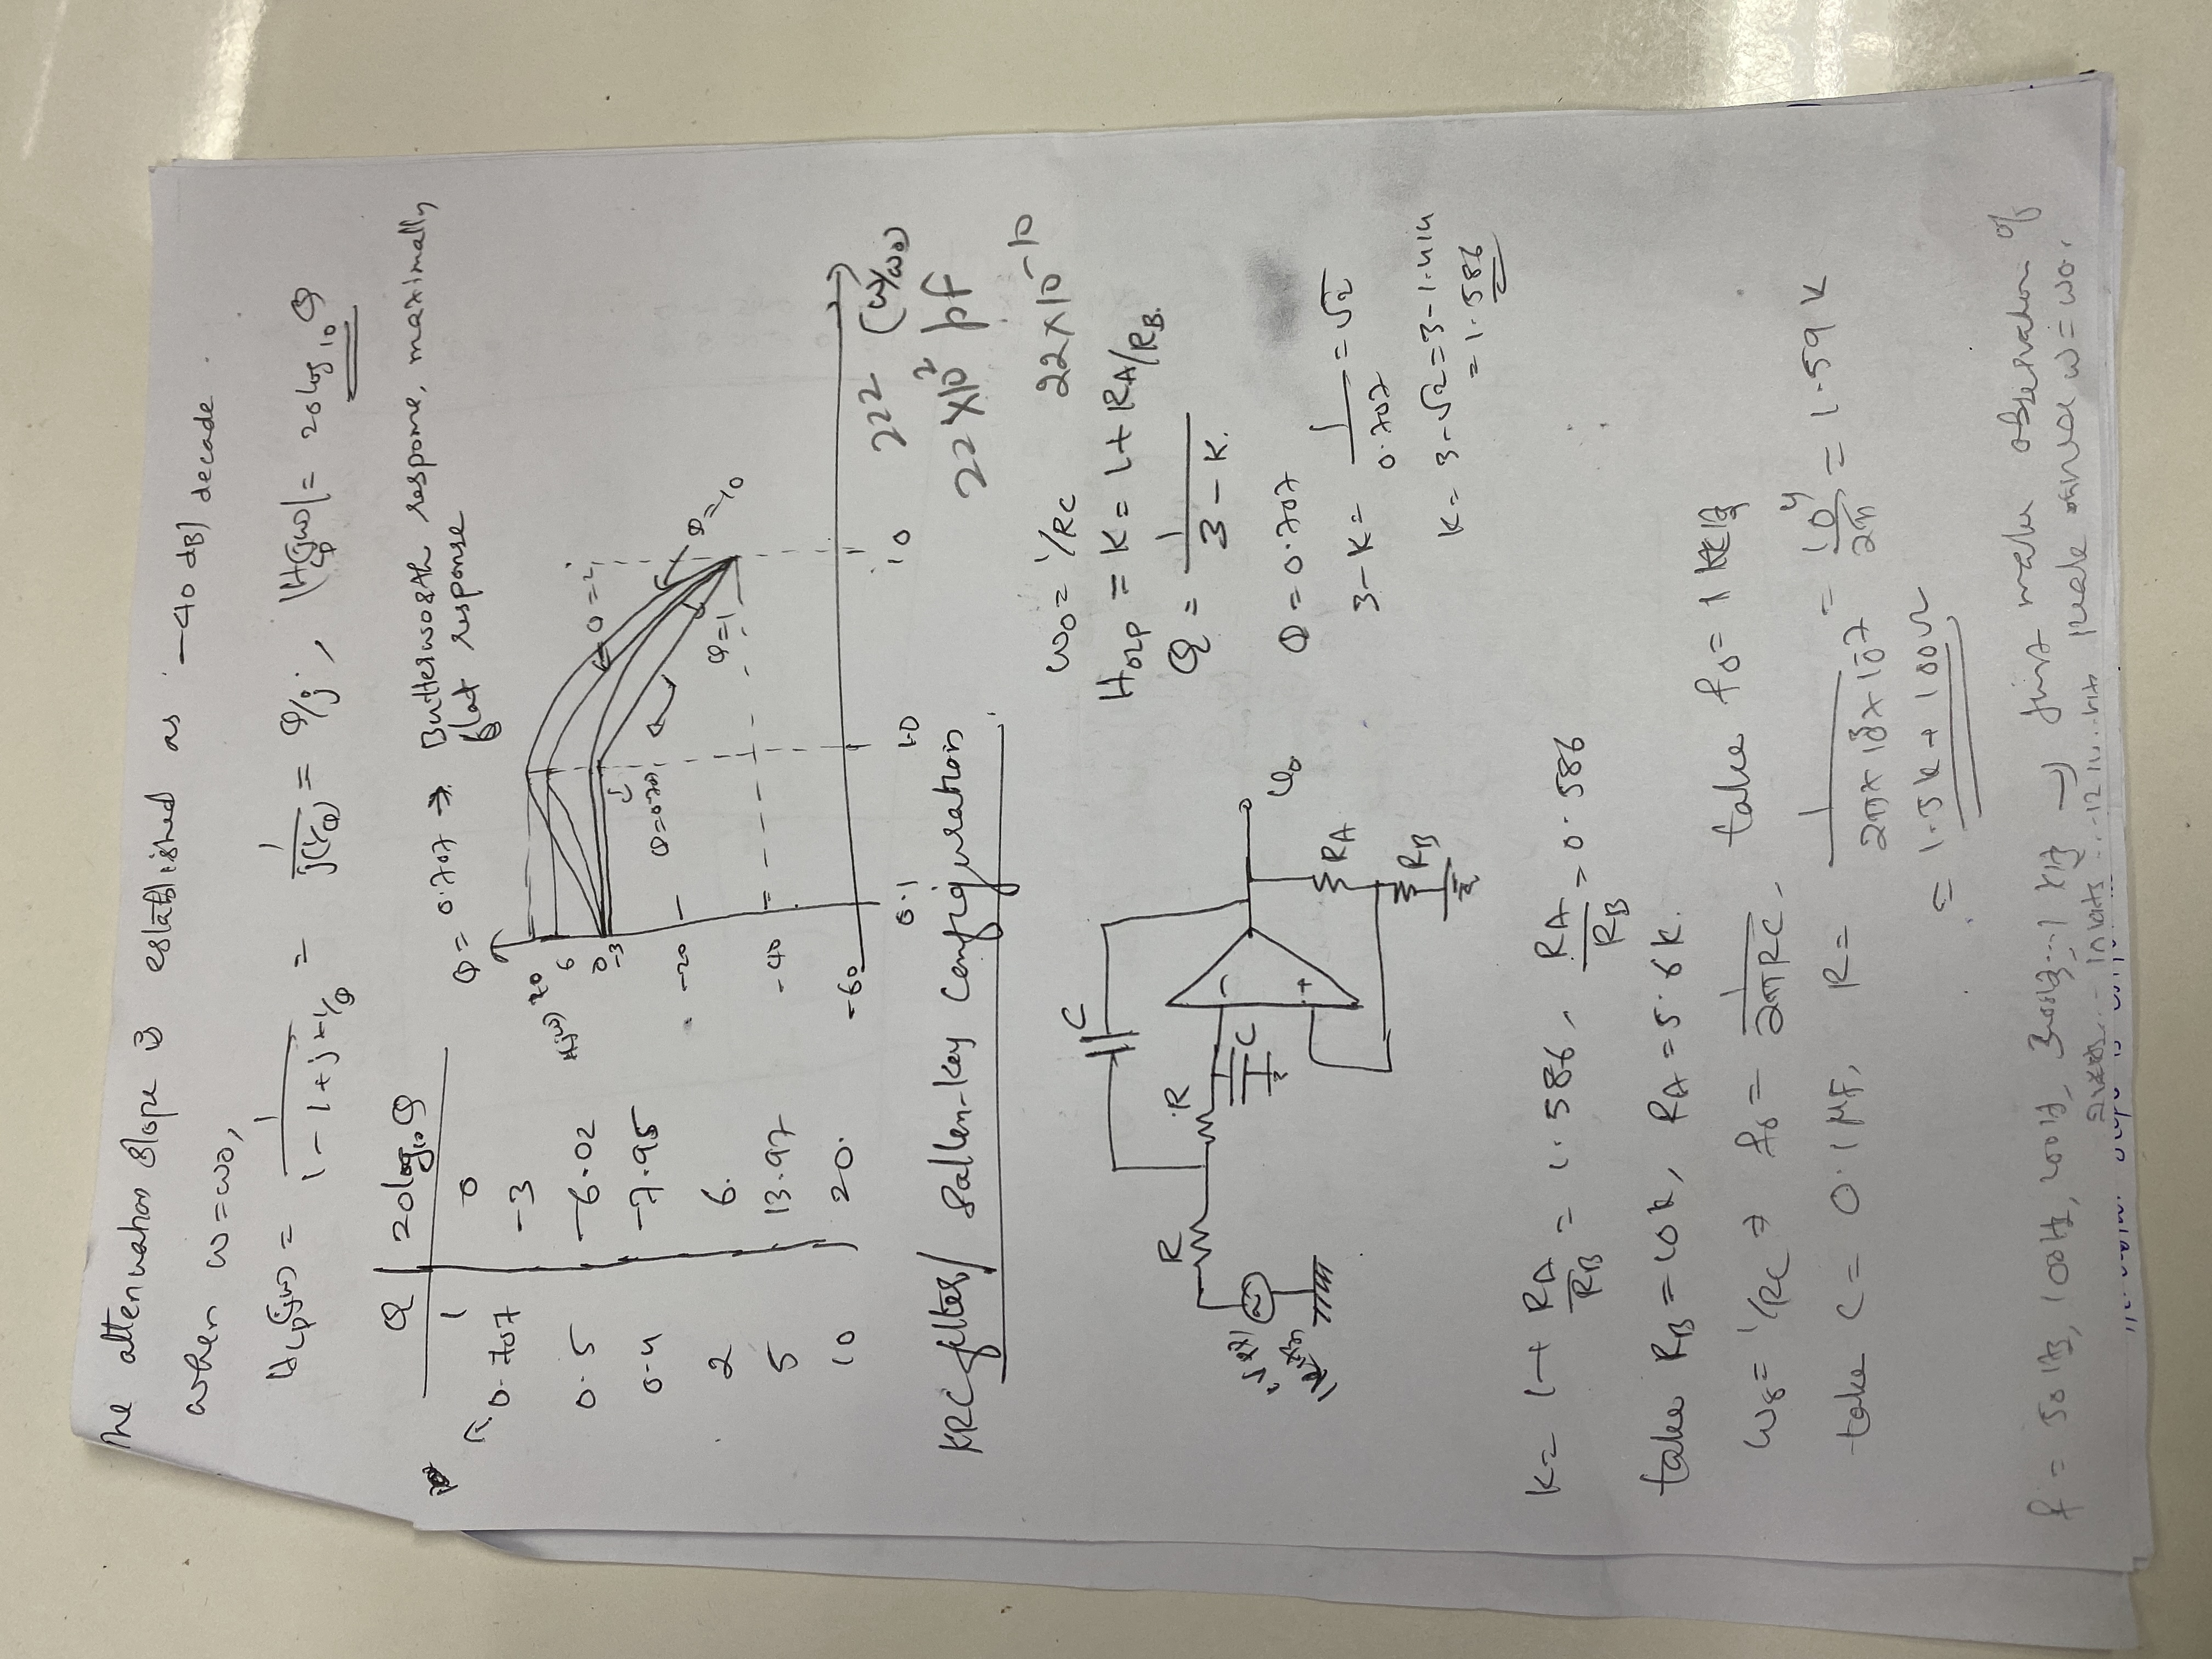 The attenuation slope is established as -40 dB/decade.
when ω=ω0,
H_LP(jω) = 1/(1-1+j×1/Q) = 1/(j(1/Q)) = Q/j, |H_LP(jω)| = 20log₁₀Q
Q | 20log₁₀Q
1 | 0
0.707 | -3
0.5 | -6.02
0.4 | -7.95
2 | 6.
5 | 13.97
10 | 20.
Q = 0.707 → Butterworth response, maximally
flat response
H(jω)
20
6
0
-3
-20
-40
-60
Q=2
Q=0.707
Q=1
Q=10
0.1 1.0 10 (ω/ω0)
222
22×10² pf
22×10⁻¹⁰
KRC filter/ Sallen-Key Configuration
C
R
R
C
1Vpp,
1kHz
-
+
v0
RA
RB
ω0 = 1/RC
H_OLP = K = 1+RA/RB.
Q = 1/(3-K.)
Q = 0.707
3-K = 1/0.707 = √2
K = 3-√2 = 3-1.414
= 1.586
K = 1+ RA/RB = 1.586, RA/RB = 0.586
take RB = 10k, RA = 5.6k.
ω0 = 1/RC ⇒ f0 = 1/2πRC, take f0 = 1 kHz
take C = 0.1 μF, R = 1/(2π×10³×10⁻⁷) = 10⁴/2π = 1.59 k
= 1.5k + 100Ω
f = 50Hz, 100Hz, 200Hz, 300Hz...1 kHz → Just make observation of
peak near ω=ω0.